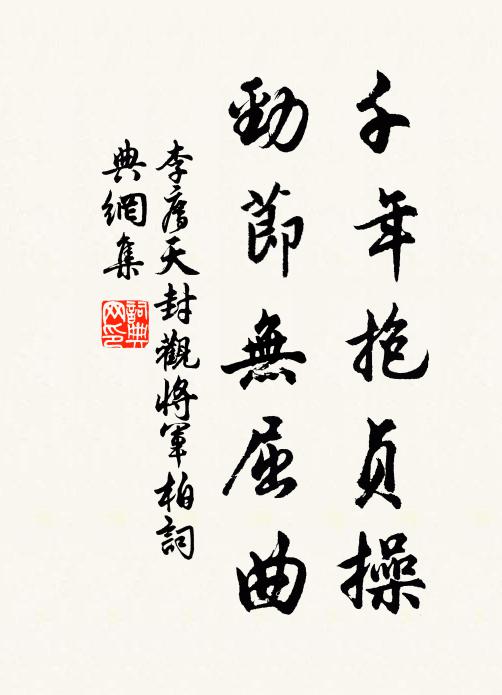 千年抱貞操
勁節無屈曲
李庿天封觀將軍柏詞
典網集
詞典網印